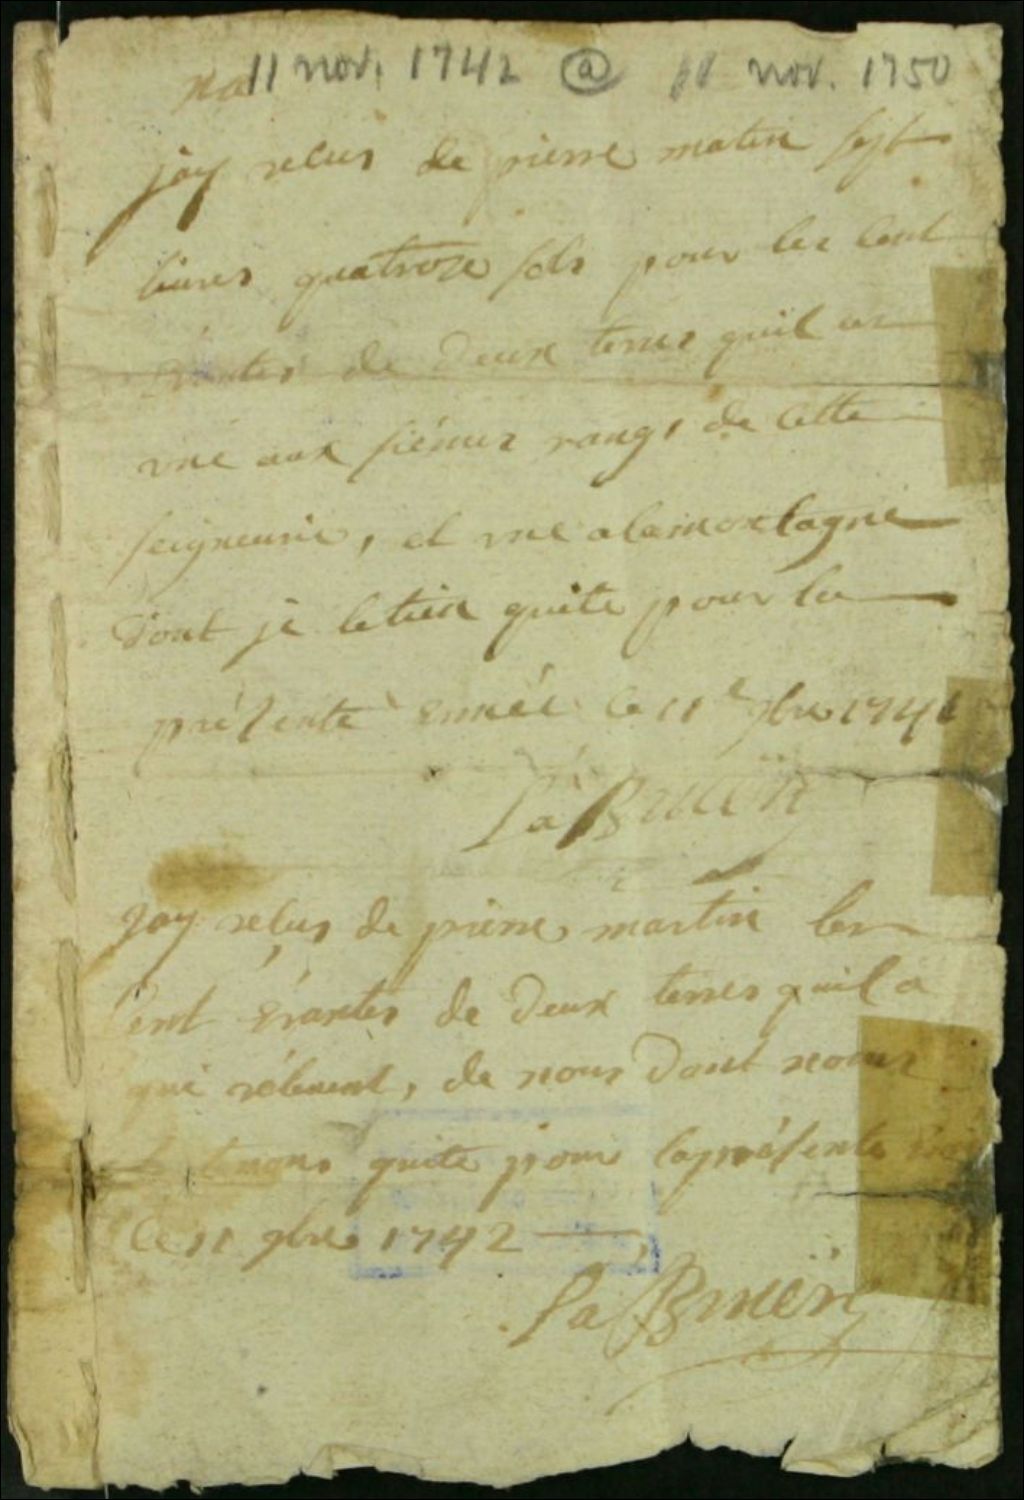 11 nov. 1742 @ 11 nov. 1750
jay relus de pierre matin sept
livres quatorze sols pour les cent
Érantes de deux terres quil a
une aux siémes rangs de cette
seigneurie, et une alamontagne
Dont je letien quite pour la
présente année ce 11e 9bre 1741
La Bruën
Jay reçus de pierre martin les
cent Érantes de deux terres quil a
qui relevent, de nous Dont nous
le tenons quite pour lapresente
Ce 11 9bre 1742
La Bruën